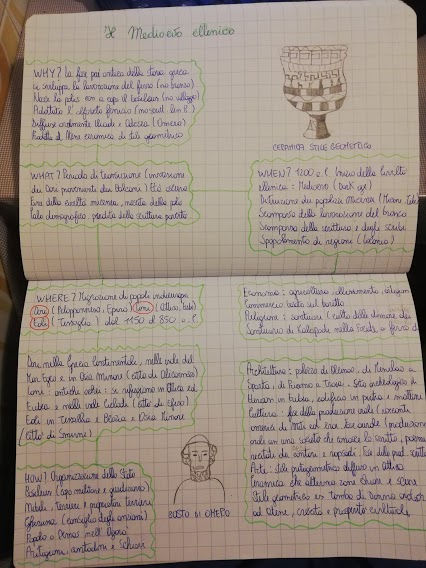 Il Medioevo ellenico
WHY? La fase più antica della storia greca
Si sviluppa la lavorazione del ferro (no bronzo)
Nasce la polis con a capo il basileus (no villaggi)
Adottato l'alfabeto fenicio (no scritt. Lin B)
Diffusi oralmente Iliade e Odissea (Omero)
Prodotta di Atene ceramica di stile geometrico
CERAMICA STILE GEOMETRICO
WHAT? Periodo di transizione (invasione
dei Dori provenienti dai Balcani) Età oscura
Fine della civiltà micenea, nascita della polis
Calo demografico perdita della scrittura
WHEN? 1200 a.C. Inizio della civiltà
ellenica: Medioevo (Dark age)
Distruzione dei palazzi micenei
Scomparsa della lavorazione del bronzo
Scomparsa della scrittura e degli scribi
Spopolamento di regioni (Laconia)
WHERE? Migrazione di popoli indoeuropei
Dori (Peloponneso, Epiro) Ioni (Attica,
Eoli (Tessaglia) dal 1150 al 850 a.C.
Economia: agricoltura, allevamento, artigian
Commercio basato sul baratto
Religione: santuari (culto della dimora dei
Santuario di Kalapodi nella Focide
Dori nella Grecia Continentale, nelle isole del
Mar Egeo e in Asia Minore (città di Alicarnasso)
Ioni: antichi achei: si rifugiano in Attica ed
Eubea e nelle isole Cicladi (città di Efeso)
Eoli in Tessaglia e Beozia e Asia Minore
(città di Smirne)
Architettura: palazzo di Odisseo, di Menelao a
Sparta, di Priamo a Troia. Sito archeologico di
in Eubea, edificio in pietra e mattoni
Cultura: fase della produzione orale (racconti
omerici di Miti ed eroi
orali in una società che conosce la scrittura, poemi
recitati da cantori e rapsodi
Arte: stile protogeometrico diffuso in Attica
Ceramica che alterna zone scure e chiare
Stile geometrico
ad Atene, crescita e prosperità culturale
HOW? Organizzazione dello Stato
Basileus (capo militare e giudiziario)
Nobili, terrieri e proprietari terrieri
Gherusia (consiglio degli anziani)
Popolo o Demos nell'Agorà
Artigiani, contadini e schiavi
BUSTO DI OMERO